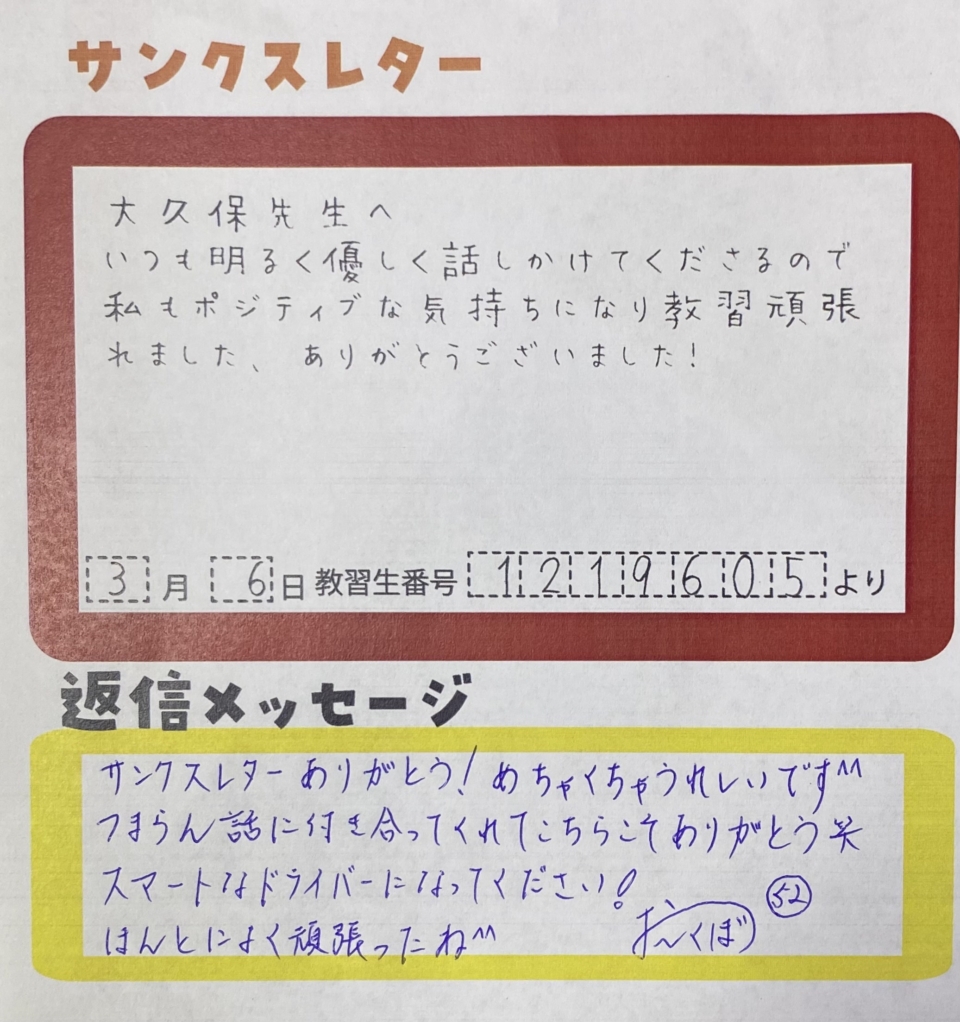 サンクスレター
大久保先生へ
いつも明るく優しく話しかけてくださるので
私もポジティブな気持ちになり教習頑張
れました、ありがとうございました!
3月6日教習生番号1219605より
返信メッセージ
サンクスレターありがとう!めちゃくちゃうれしいです^^
つまらん話に付き合ってくれてこちらこそありがとう笑
スマートなドライバーになってください!
ほんとによく頑張ったね^^
お〜くぼ 52